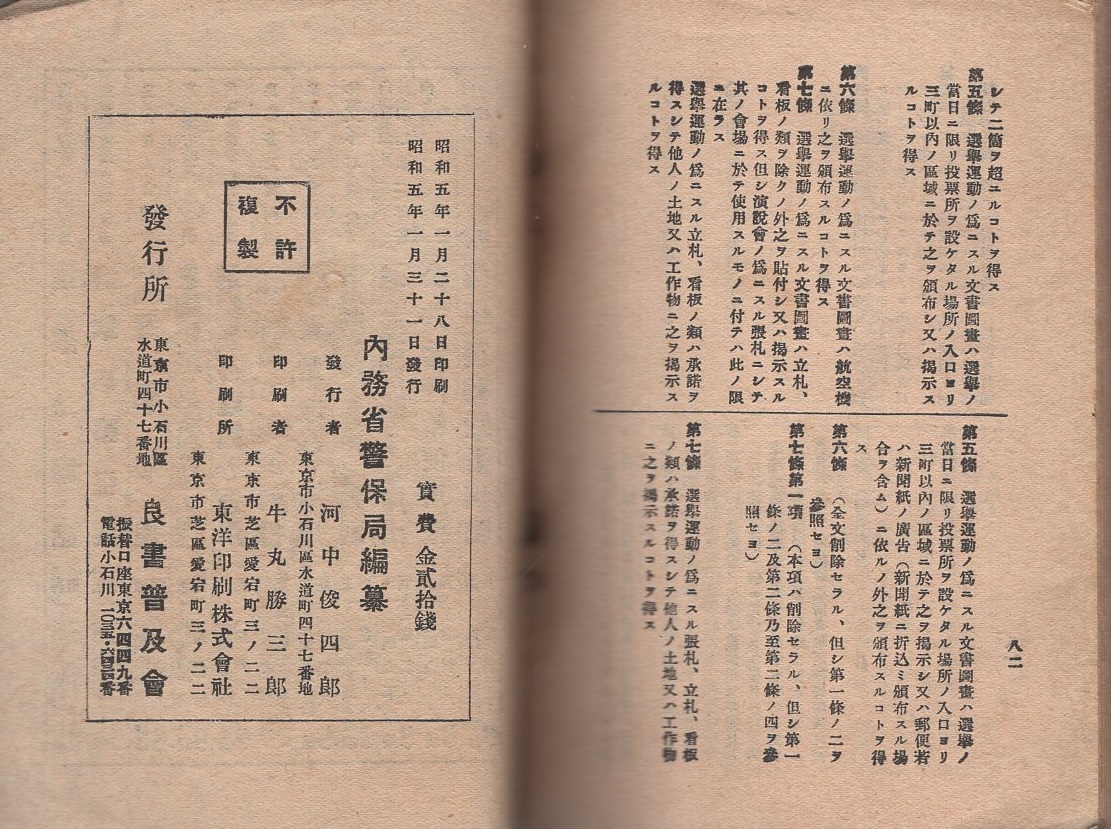 シテ二箇ヲ超ユルコトヲ得ス
第五條　選擧運動ノ爲ニスル文書圖畫ハ選擧ノ
當日ニ限リ投票所ヲ設ケタル場所ノ入口ヨリ
三町以內ノ區域ニ於テ之ヲ頒布シ又ハ揭示ス
ルコトヲ得ス
第六條　選擧運動ノ爲ニスル文書圖畫ハ航空機
ニ依リ之ヲ頒布スルコトヲ得ス
第七條　選擧運動ノ爲ニスル文書圖畫ハ立札、
看板ノ類ヲ除クノ外之ヲ貼付シ又ハ揭示スル
コトヲ得ス但シ演說會ノ爲ニスル張札ニシテ
其ノ會場ニ於テ使用スルモノニ付テハ此ノ限
ニ在ラス
選擧運動ノ爲ニスル立札、看板ノ類ハ承諾ヲ
得スシテ他人ノ土地又ハ工作物ニ之ヲ揭示ス
ルコトヲ得ス
第五條　選擧運動ノ爲ニスル文書圖畫ハ選擧ノ
當日ニ限リ投票所ヲ設ケタル場所ノ入口ヨリ
三町以內ノ區域ニ於テ之ヲ揭示シ又ハ郵便若
ハ新聞紙ノ廣告（新聞紙ニ折込ミ頒布スル場
合ヲ含ム）ニ依ルノ外之ヲ頒布スルコトヲ得
ス
第六條　（全文削除セラル、但シ第一條ノ二ヲ
參照セヨ）
第七條第一項　（本項ハ削除セラル、但シ第一
條ノ二及第二條乃至第二條ノ四ヲ參
照セヨ）
第七條　選擧運動ノ爲ニスル張札、立札、看板
ノ類ハ承諾ヲ得スシテ他人ノ土地又ハ工作物
ニ之ヲ揭示スルコトヲ得ス
八二
昭和五年一月二十八日印刷
昭和五年一月三十一日發行
實費　金貳拾錢
內務省警保局編纂
發行者　東京市小石川區水道町四十七番地
河中俊四郎
印刷者　東京市芝區愛宕町三ノ二二
牛丸勝三郎
印刷所　東京市芝區愛宕町三ノ二二
東洋印刷株式會社
不許
複製
發行所
東京市小石川區
水道町四十七番地
良書普及會
振替口座東京六四四九番
電話小石川